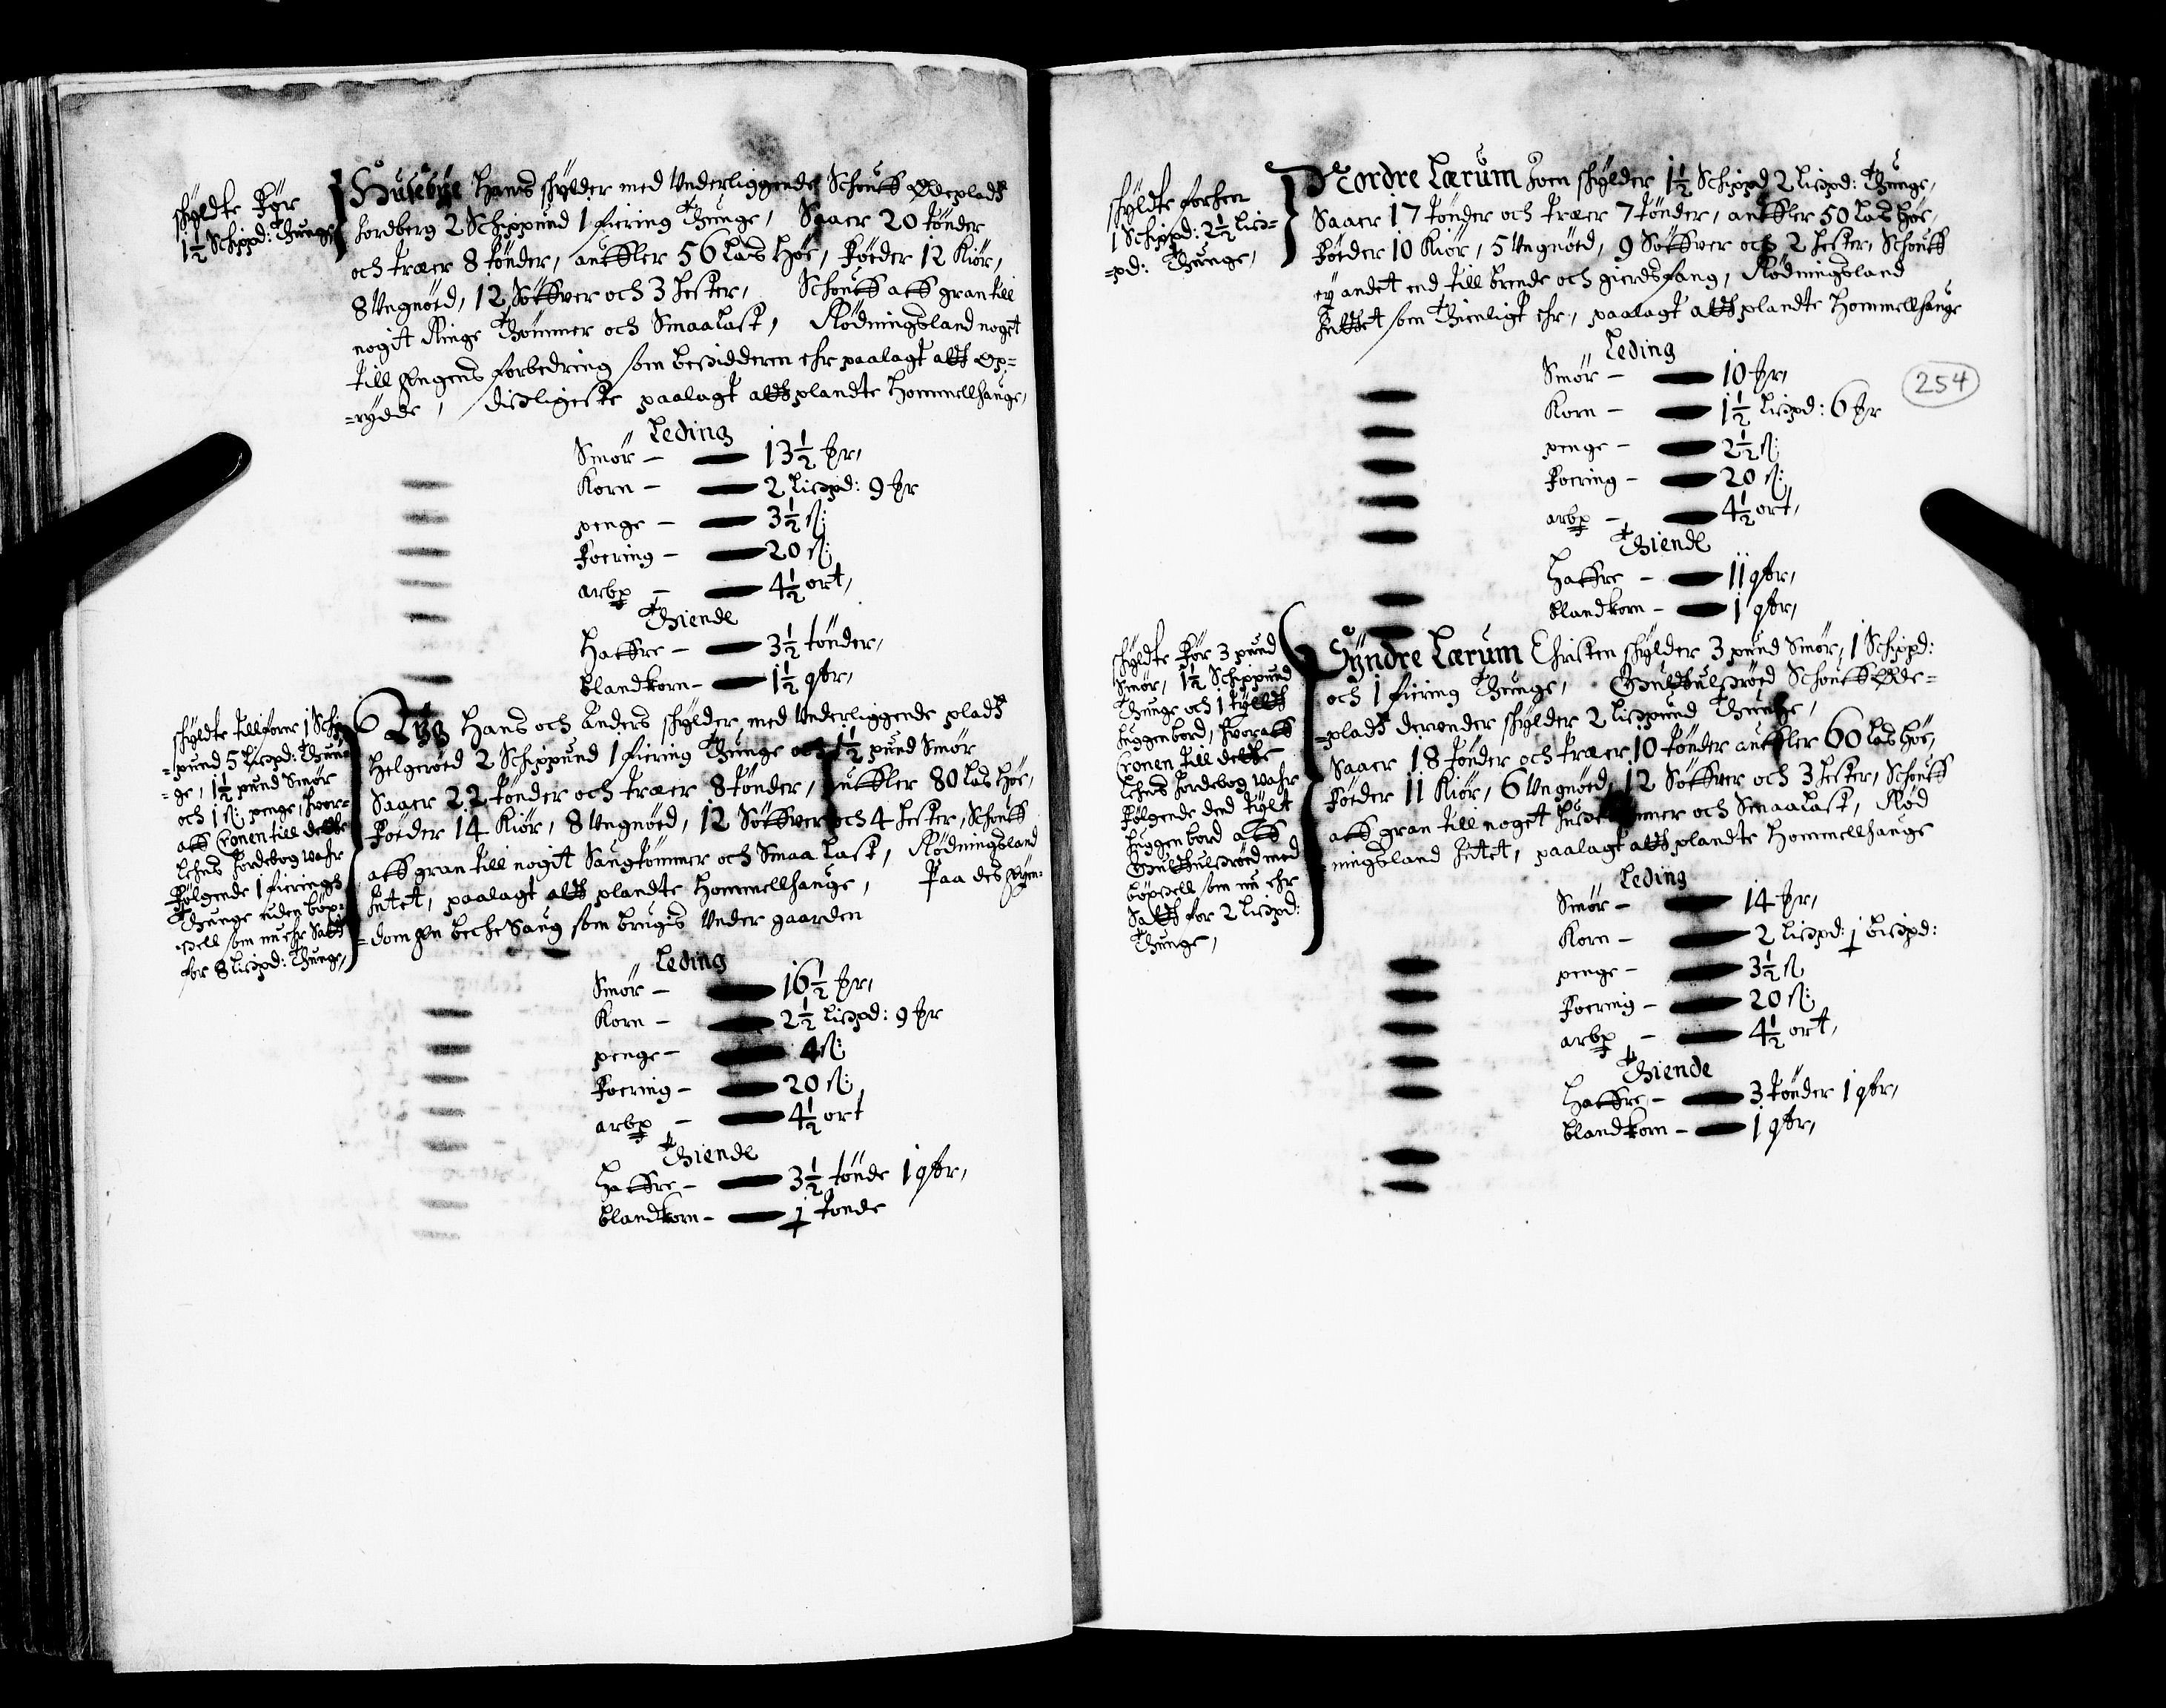 skyldte för
1½ Schippd: Thunge
Husebye Hans skylder med Underliggende Schouff Ødepladtz
Jordberg 2 Schippund 1 fiering Thunge, Saaer 20 tönder
och træer 8 tönder, auffler 56 las Höe, föeder 12 Kiör,
8 Ungnöed, 12 Söffver och 3 hester, Schouff aff gran till
nogit Ringe Thömmer och Smaalast, Rödningsland noget
till Engens forbedring som besidderen ehr paalagt att Op=
=rydde, disligeste paalagt att plandte Hommelhauge,
Leding
Smör — 13½ hr,
Korn — 2 Lispd: 9 hr
penge — 3½ ß:
foering — 20 ß:
arbp — 4½ ort,
Thiende
Haffre — 3½ tönder,
blandkorn — 1½ qtr,
skyldte tillforne 1 Schip
=pund 5 Lispd: Thun
=ge, 1½ pund Smör
och 1 ß penge, hvor=
aff Cronen till dette
Lehns Jordebog vahr
fölgende 1 fierings
Thunge uden böx=
=sell som nu ehr Satt
for 8 Lispd: Thunge,
Hans och Anders skylder med Underliggende pladtz
Helgeröed 2 Schippund 1 fiering Thunge och 1½ pund Smör
Saaer 22 tönder och træer 8 tönder, auffler 80 las Höe,
föeder 14 Kiör, 8 Ungnöed, 12 Söffver och 4 hester, Schouff
aff gran till nogit Saugtömmer och Smaa Last, Rödningsland
Intet, paalagt att plandte Hommelhauge, Paa des Eyen=
=dom En beche Saug som brugis Under gaarden
Leding
Smör — 16½ hr,
Korn — 2½ Lispd: 9 hr
penge — 4 ß:
foering — 20 ß:
arbp — 4½ ort
Thiende
Haffre — 3½ tönde 1 qtr,
blandkorn — 1 tonde
skyldte forhen
1 Schippd: 2½ Lis=
=pd: Thunge,
Nordre Lærum Joen skylder 1½ Schippd 2 Lispd: Thunge,
Saaer 17 tönder och træer 7 tönder, auffler 50 las höe,
föeder 10 Kiör, 5 Ungnöed, 9 Söffver och 2 hester, Schouff
ey andet end till brende och gierdsfang, Rödningsland
Inttet som Thienligt ehr, paalagt att plandte Hommelhauge
Leding
254
Smör — 10 hr,
Korn — 1½ Lispd: 6 hr
penge — 2½ ß:
foering — 20 ß:
arbp — 4½ ort,
Thiende
Haffre — 11 qtr,
blandkorn — 1 qtr,
skyldte för 3 pund
Smör, 1½ Schippund
Thunge och 1 tyllt
huggenbord, hvoraff
Cronen till dette
Lehns Jordebog vahr
fölgende dend tylt
huggenbord aff
med
böxsell som nu ehr
Satt for 2 Lispd:
Thunge,
Syndre Lærum Christen skylder 3 pund Smör, 1 Schippd:
och 1 fiering Thunge, Schouff Øde=
=pladtz derunder skylder 2 Lispund Thunge,
Saaer 18 tönder och træer 10 tönder auffler 60 las höe,
föeder 11 Kiör, 6 Ungnöed, 12 Söffver och 3 hester, Schouff
aff gran till noget och Smaalast, Röd
=ningsland Intet, paalagt att plandte Hommelhauge
Leding
Smör — 14 hr,
Korn — 2 Lispd: 1 bispd:
penge — 3½ ß
foering — 20 ß:
arbp — 4½ ort,
Thiende
Haffre — 3 tönder 1 qtr,
blandkorn — 1 qtr,